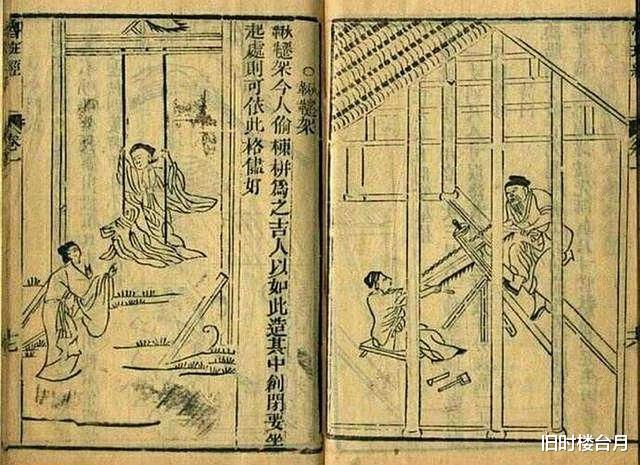 ○鞦韆架
鞦韆架今人偷棟栟爲之吉人以如此造其中創閑要坐
起處則可依此格儘好
魯班經
卷一
十七
旧时楼台月